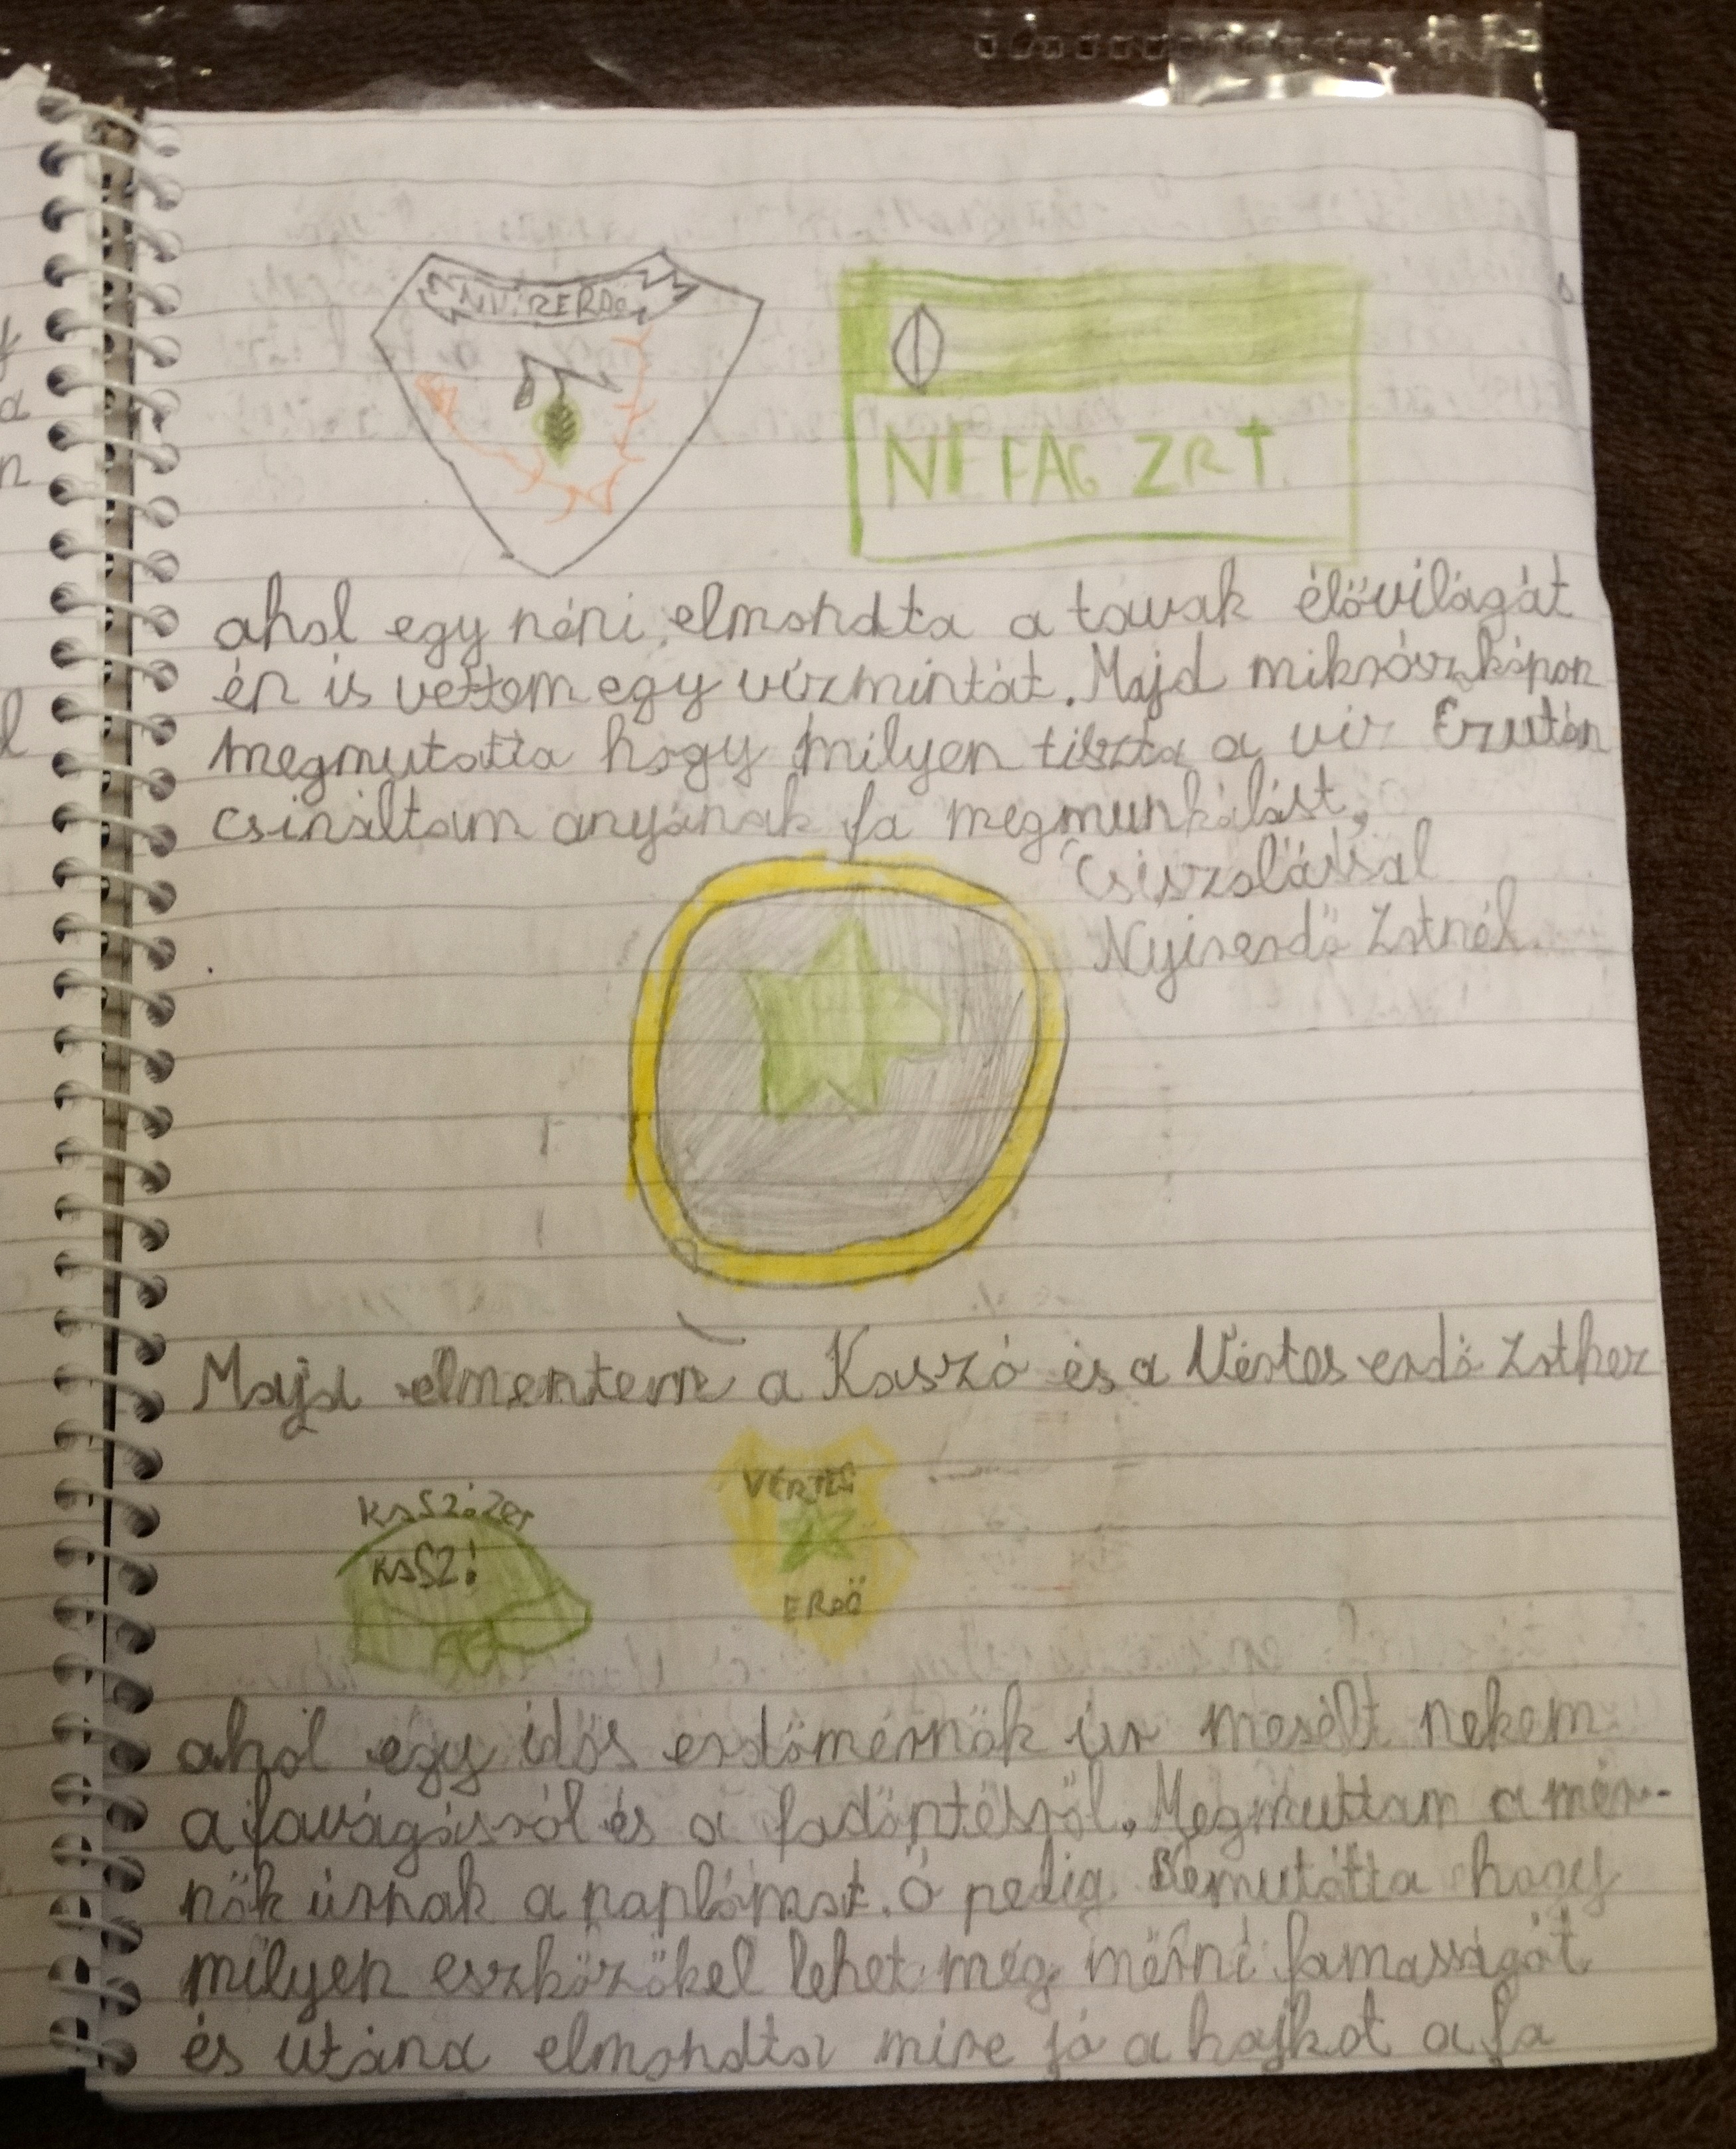 NYÍRERDŐ
NEFAG ZRT
ahol egy néni elmondta a tavak élővilágát
én is vettem egy vízmintát. Majd mikrószkópon
megmutatta hogy milyen tiszta a víz Ezután
csináltam anyának fa megmunkálást,
csiszolással
Nyírerdő Zrtnél.
Majd elmentem a Kaszó és a Vértes erdő Zrthez
KASZÓ
VÉRTES
ERDŐ
ahol egy idős erdőmérnök úr mesélt nekem
a favágásról és a fadöntésről. Megmuttam a mér-
nök úrnak a naplómat. Ő pedig Bemutatta hogy
milyen eszközökel lehet meg mérni famasságát
és utána elmondta mire jó a a fa